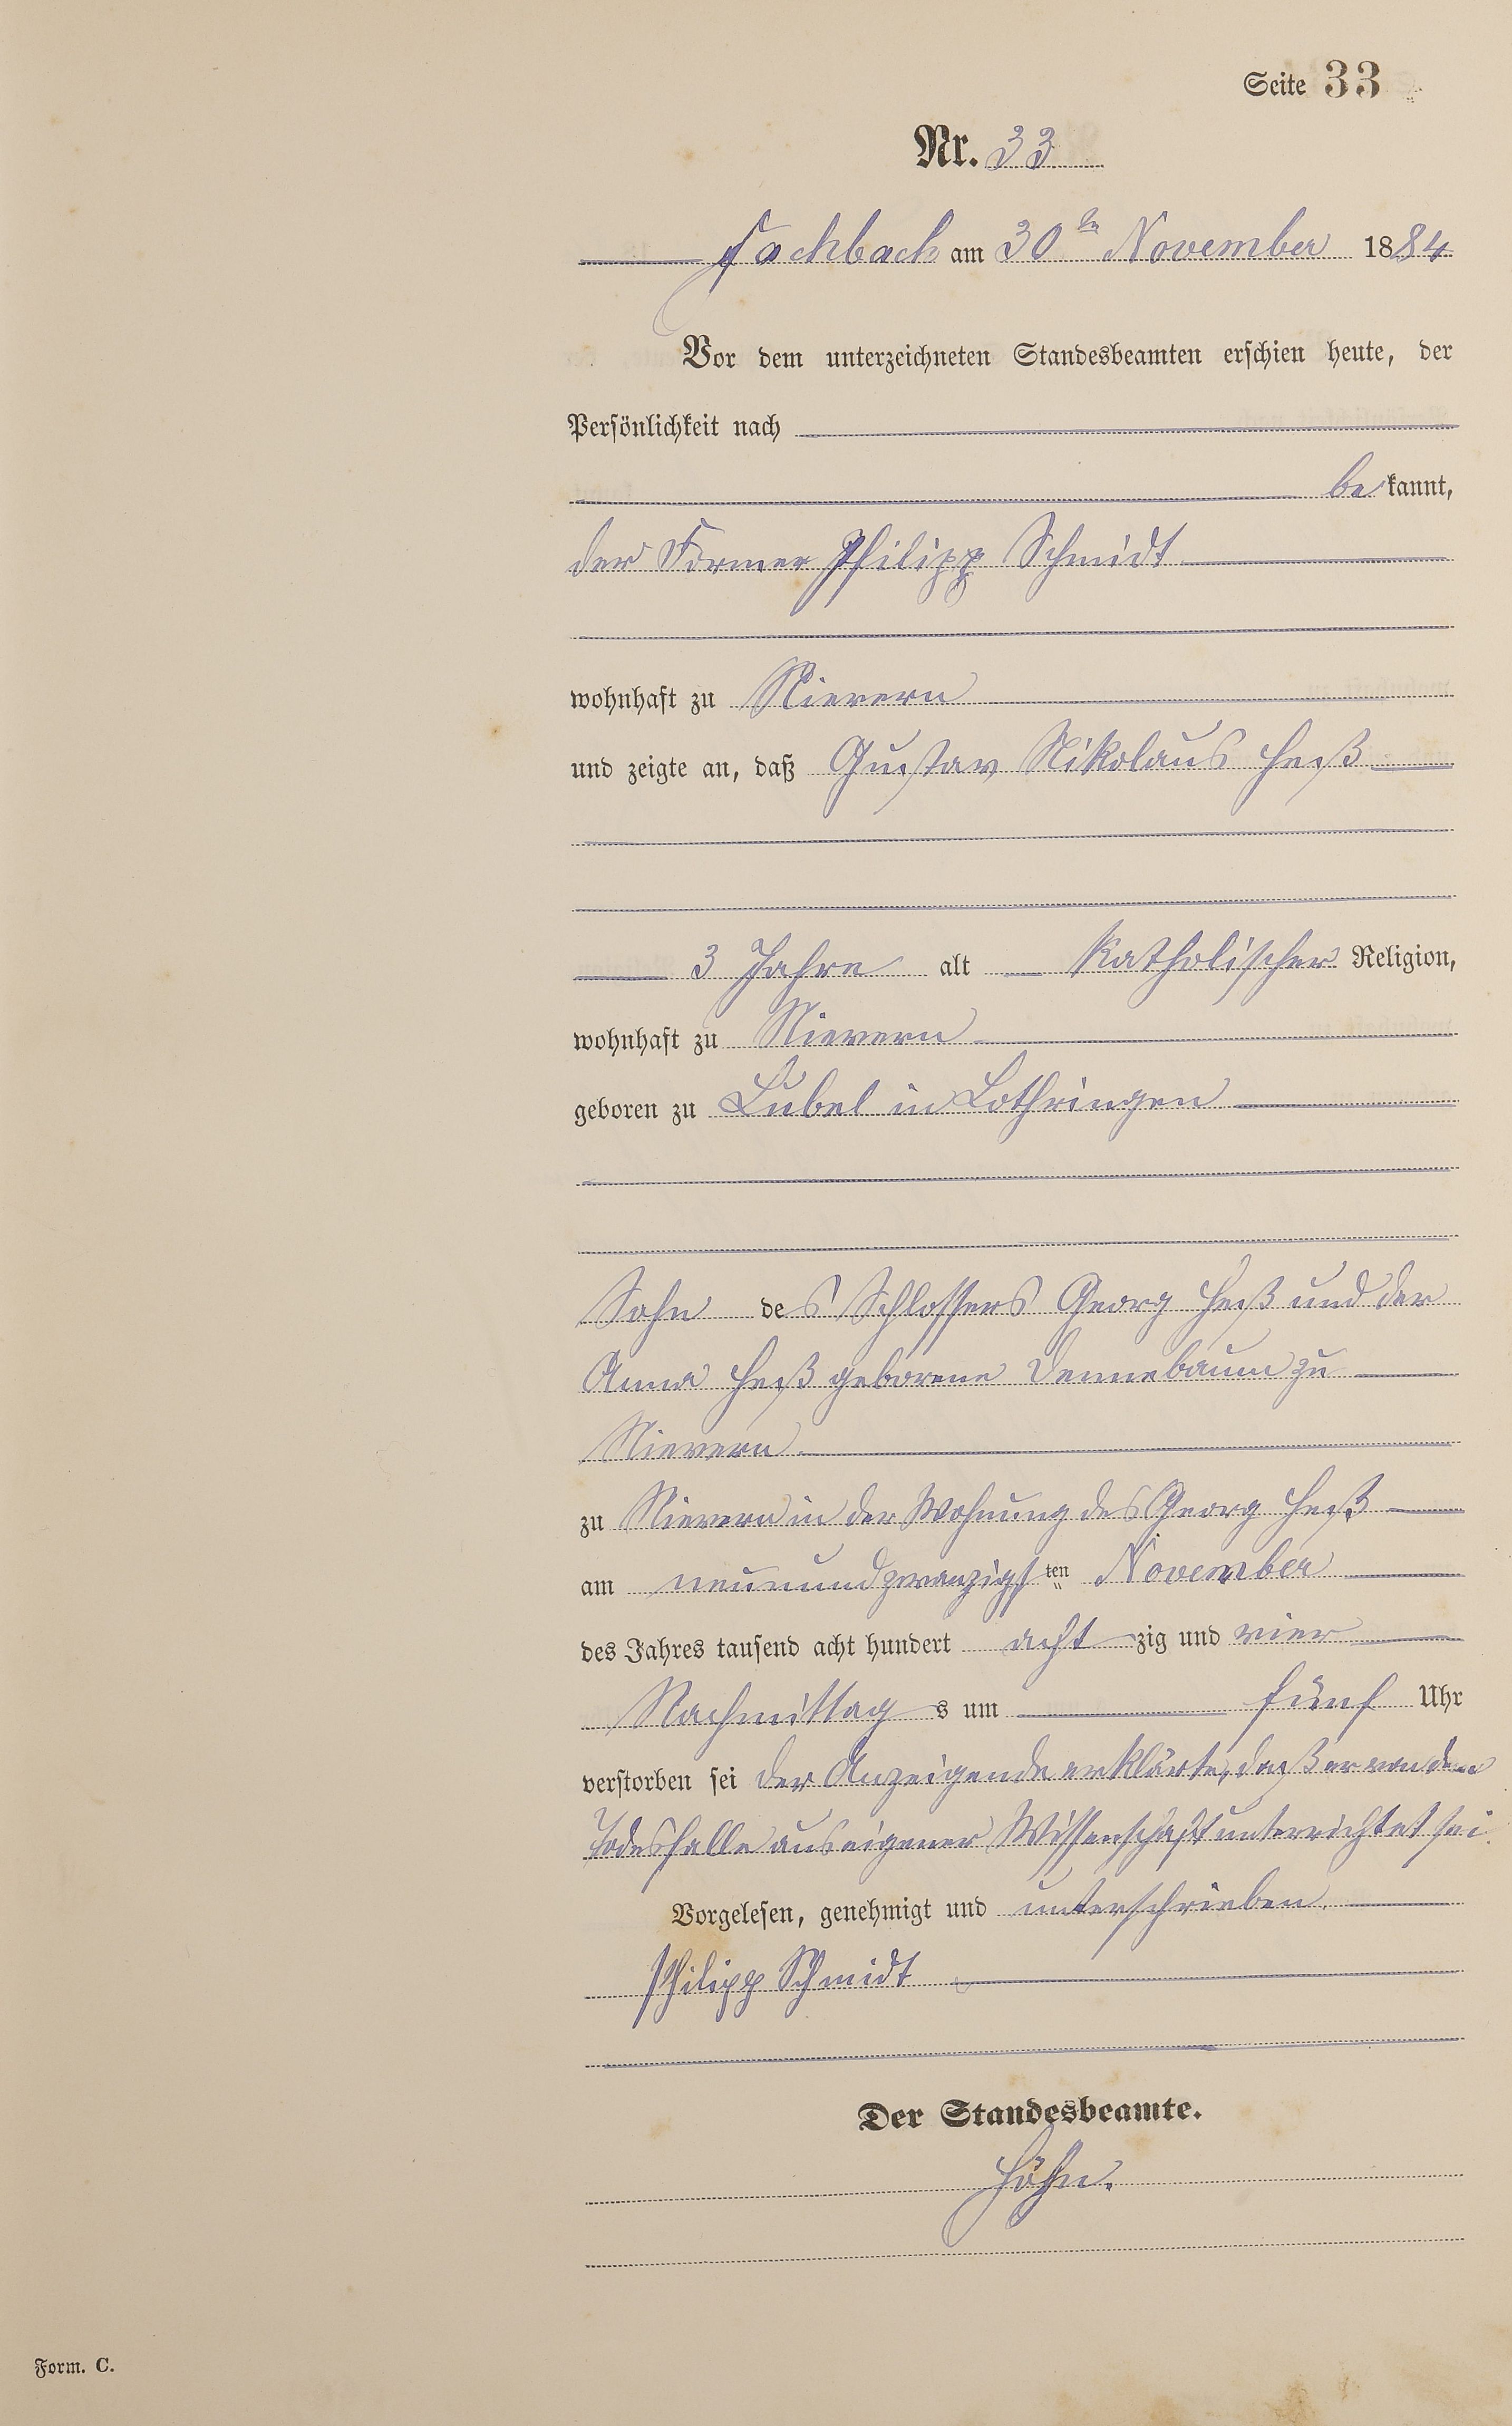 Seite 33
Nr. 33
Fachbach am 30ten November 1884
Vor dem unterzeichneten Standesbeamten erschien heute, der
Persönlichkeit nach
bekannt,
der Former Philipp Schmidt
wohnhaft zu Nievern
und zeigte an, daß Gustav Nikolaus Heß
3 Jahre alt katholischer Religion,
wohnhaft zu Nievern
geboren zu Lübel in Lothringen
Sohn des Schlossers Georg Heß und der
Anna Heß geborene Dennebaum zu
Nievern
zu Nievern in der Wohnung des Georg Heß
am neunundzwanzigsten November
des Jahres tausend acht hundert achtzig und vier
Nachmittags um fünf Uhr
verstorben sei der Anzeigende erklärte, daß er von dem
Todesfalle aus eigener Wissenschaft unterrichtet sei.
Vorgelesen, genehmigt und unterschrieben.
Philipp Schmidt
Der Standesbeamte.
Höhn.
Form. C.